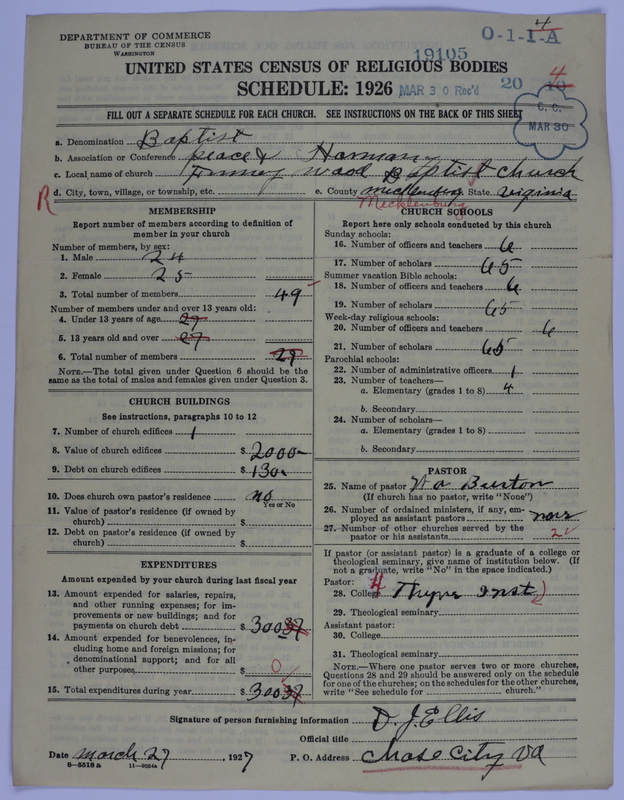 DEPARTMENT OF COMMERCE
BUREAU OF THE CENSUS
WASHINGTON
4
O-1-1-A
19105
UNITED STATES CENSUS OF RELIGIOUS BODIES
SCHEDULE: 1926
MAR 30 Rec'd
20
4
C. C.
MAR 30
FILL OUT A SEPARATE SCHEDULE FOR EACH CHURCH. SEE INSTRUCTIONS ON THE BACK OF THIS SHEET
a. Denomination Baptist
b. Association or Conference peace & Harmony
c. Local name of church wood Baptist church
R
d. City, town, village, or township, etc. e. County mecklenburg State virginia
Mecklenburg
MEMBERSHIP
Report number of members according to definition of
member in your church
Number of members, by sex:
1. Male 24
2. Female 25
3. Total number of members 49
Number of members under and over 13 years old:
4. Under 13 years of age 27
5. 13 years old and over 27
6. Total number of members 29
NOTE.—The total given under Question 6 should be
same as the total of males and females given under Question 3.
CHURCH BUILDINGS
See instructions, paragraphs 10 to 12
7. Number of church edifices 1
8. Value of church edifices $ 2000
9. Debt on church edifices $ 130
10. Does church own pastor's residence no
Yes or No
11. Value of pastor's residence (if owned by
church) $
12. Debt on pastor's residence (if owned by
church) $
EXPENDITURES
Amount expended by your church during last fiscal year
13. Amount expended for salaries, repairs,
and other running expenses; for im-
provements or new buildings; and for
payments on church debt $ 300 37
14. Amount expended for benevolences, in-
cluding home and foreign missions; for
denominational support; and for all
other purposes $ 0
15. Total expenditures during year $ 300 37
CHURCH SCHOOLS
Report here only schools conducted by this church
Sunday schools:
16. Number of officers and teachers 6
17. Number of scholars 65
Summer vacation Bible schools:
18. Number of officers and teachers 6
19. Number of scholars 65
Week-day religious schools:
20. Number of officers and teachers 6
21. Number of scholars 65
Parochial schools:
22. Number of administrative officers 1
23. Number of teachers—
a. Elementary (grades 1 to 8) 4
b. Secondary
24. Number of scholars—
a. Elementary (grades 1 to 8)
b. Secondary
PASTOR
25. Name of pastor W a Burton
(If church has no pastor, write "None")
26. Number of ordained ministers, if any, em-
ployed as assistant pastors none
27. Number of other churches served by the
pastor or his assistants 2
If pastor (or assistant pastor) is a graduate of a college or
theological seminary, give name of institution below. (If
not a graduate, write "No" in the space indicated.)
Pastor:
28. College Thyne Inst 2
29. Theological seminary
Assistant pastor:
30. College
31. Theological seminary
NOTE.—Where one pastor serves two or more churches,
Questions 28 and 29 should be answered only on the schedule
for one of the churches; on the schedules for the other churches,
write "See schedule for church."
Signature of person furnishing information D. J. Ellis
Official title
Date march 27, 1927 P. O. Address Chase City Va
8—5518 a 11—9034a